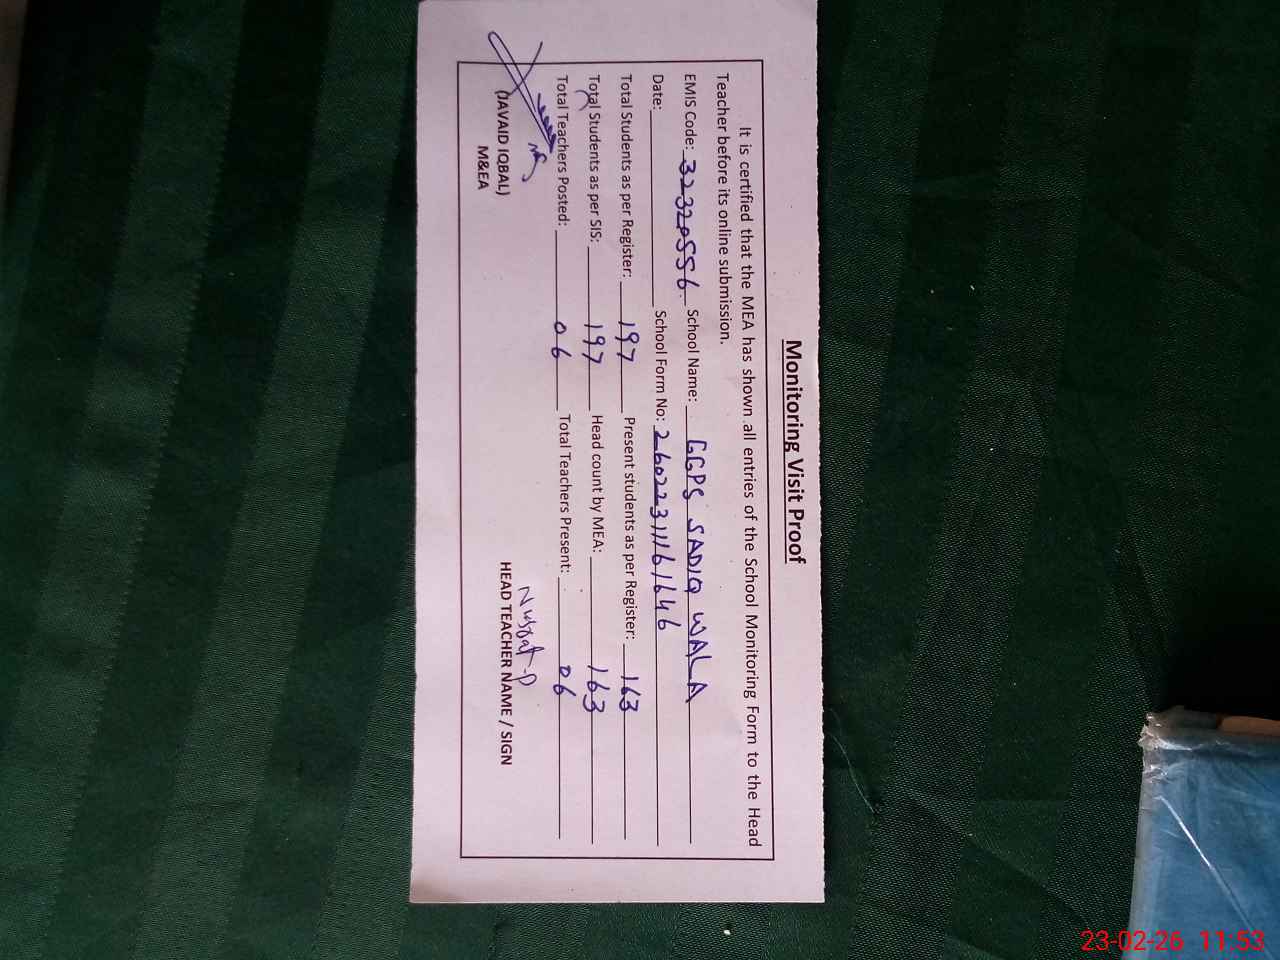 Monitoring Visit Proof
It is certified that the MEA has shown all entries of the School Monitoring Form to the Head
Teacher before its online submission.
EMIS Code: 32320556 School Name: GGPS SADIQ WALA
Date: School Form No: 26022311161646
Total Students as per Register: 197 Present students as per Register: 163
Total Students as per SIS: 197 Head count by MEA: 163
Total Teachers Posted: 06 Total Teachers Present: 06
Nusrat P
(JAVAID IQBAL) HEAD TEACHER NAME / SIGN
M&EA
23-02-26 11:53